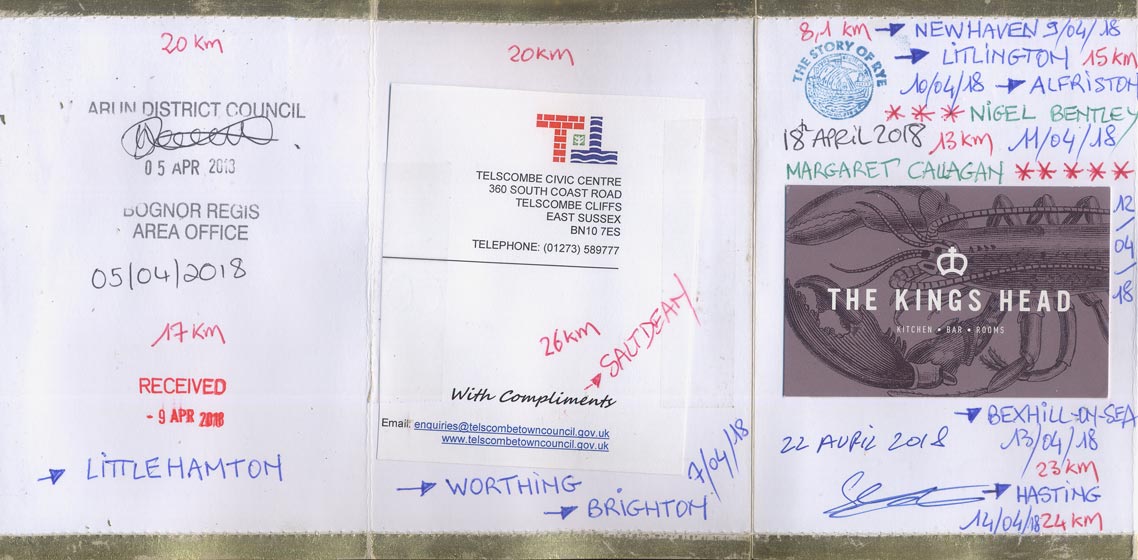 20 Km
ARUN DISTRICT COUNCIL
05 APR 2013
BOGNOR REGIS
AREA OFFICE
05/04/2018
17 Km
RECEIVED
- 9 APR 2018
→ LITTLEHAMTON
20 Km
TL
TELSCOMBE CIVIC CENTRE
360 SOUTH COAST ROAD
TELSCOMBE CLIFFS
EAST SUSSEX
BN10 7ES
TELEPHONE: (01273) 589777
26 Km
→ SALTDEAN
With Compliments
Email: enquiries@telscombetowncouncil.gov.uk
www.telscombetowncouncil.gov.uk
→ WORTHING
→ BRIGHTON
7/04/18
8,1 Km → NEWHAVEN 9/04/18
THE STORY OF RYE
→ LITLINGTON 15 Km
10/04/18 → ALFRISTON
* * * NIGEL BENTLEY
18th APRIL 2018 13 Km 11/04/18
MARGARET CALLAGAN * * * * *
12/04/18
THE KINGS HEAD
KITCHEN • BAR • ROOMS
→ BEXHILL-ON-SEA
22 AVRIL 2018 13/04/18
23 Km
→ HASTING
14/04/18 24 Km